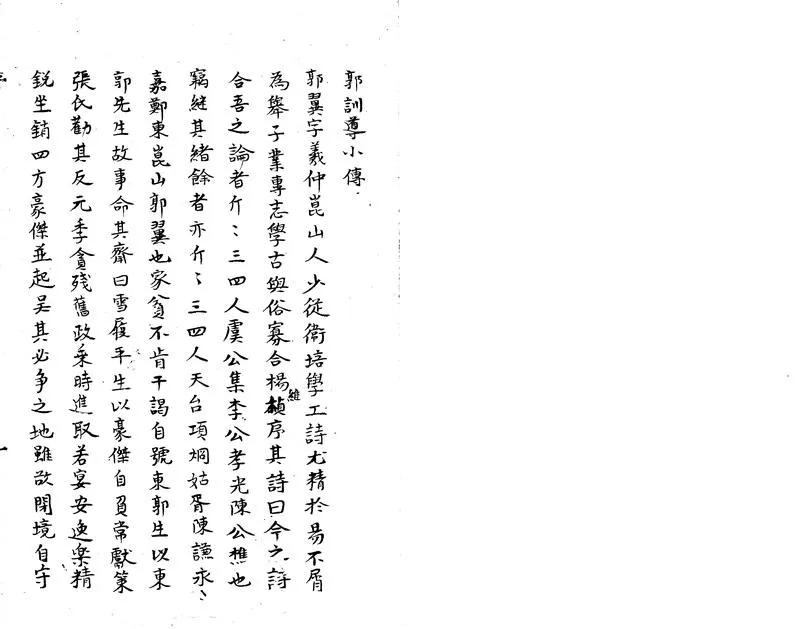 郭訓導小傳
郭翼字羲仲崑山人少從衛培學工詩尤精於易不屑
為舉子業專志學古與俗寡合楊維楨序其詩曰今之詩
合吾之論者斤〻三四人虞公集李公孝光陳公樵也
竊繼其緒餘者亦斤〻三四人天台項烱姑胥陳謙永〻
嘉鄭東崑山郭翼也家貧不肯干謁自號東郭生以東
郭先生故事命其齋曰雪履平生以豪傑自負常獻策
張氏勸其反元季貪殘舊政乘時進取若宴安逸樂精
銳坐銷四方豪傑並起吴其必争之地雖欲閉境自守